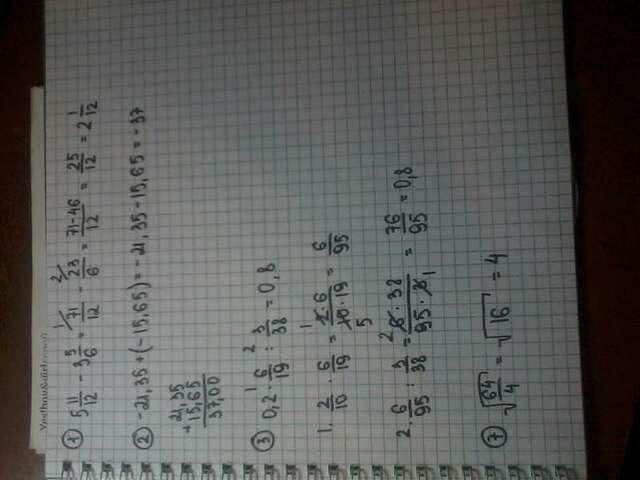 ① 5 11/12 - 3 5/6 = 71/12 - 23/6 = (71-46)/12 = 25/12 = 2 1/12
② -21,35+(-15,65)=-21,35-15,65=-37
+21,35
15,65
37,00
③ 0,2 · 6/19 : 3/38 = 0,8
1. 2/10 · 6/19 = (2·6)/(10·19) = 6/95
2. 6/95 : 3/38 = (6·38)/(95·3) = 76/95 = 0,8
⑦ √(64/4) = √16 = 4